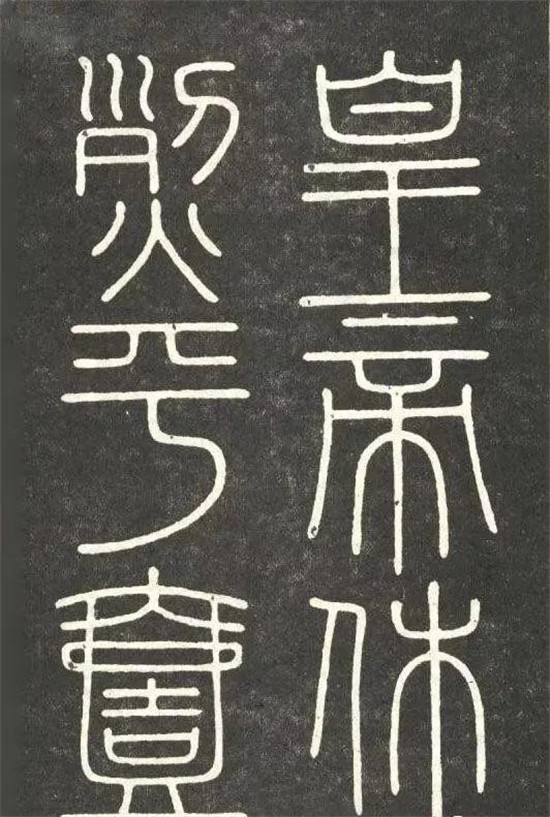 皇帝休
烈平壹